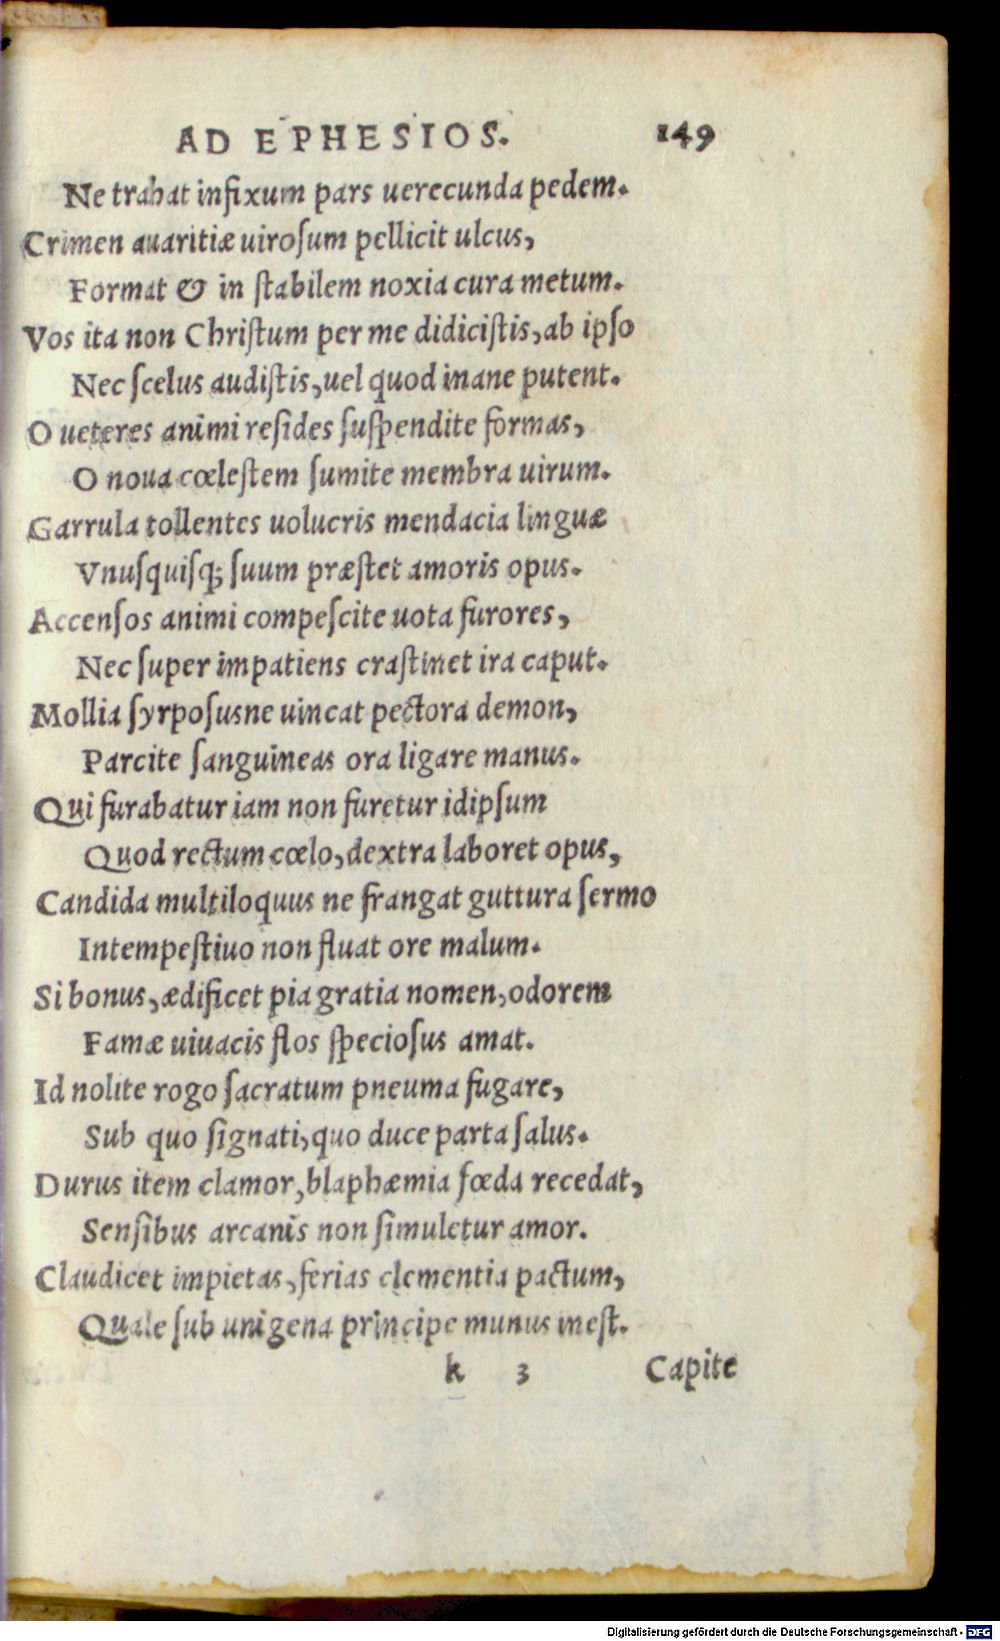 AD EPHESIOS. 149
Ne trahat infixum pars uerecunda pedem.
Crimen auaritiæ uirosum pellicit ulcus,
Format & in stabilem noxia cura metum.
Vos ita non Christum per me didicistis, ab ipso
Nec scelus audistis, uel quod inane putent.
O ueteres animi resides suspendite formas,
O noua cœlestem sumite membra uirum.
Garrula tollentes uolucris mendacia linguæ
Vnusquisq; suum præstet amoris opus.
Accensos animi compescite uota furores,
Nec super impatiens crastinet ira caput.
Mollia syrposusne uincat pectora demon,
Parcite sanguineas ora ligare manus.
Qui furabatur iam non furetur idipsum
Quod rectum cœlo, dextra laboret opus,
Candida multiloquus ne frangat guttura sermo
Intempestiuo non fluat ore malum.
Si bonus, ædificet pia gratia nomen, odorem
Famæ uiuacis flos speciosus amat.
Id nolite rogo sacratum pneuma fugare,
Sub quo signati, quo duce parta salus.
Durus item clamor, blaphæmia fœda recedat,
Sensibus arcanis non simuletur amor.
Claudicet impietas, ferias clementia pactum,
Quale sub unigena principe munus inest.
k 3 Capite
Digitalisierung gefördert durch die Deutsche Forschungsgemeinschaft - DFG